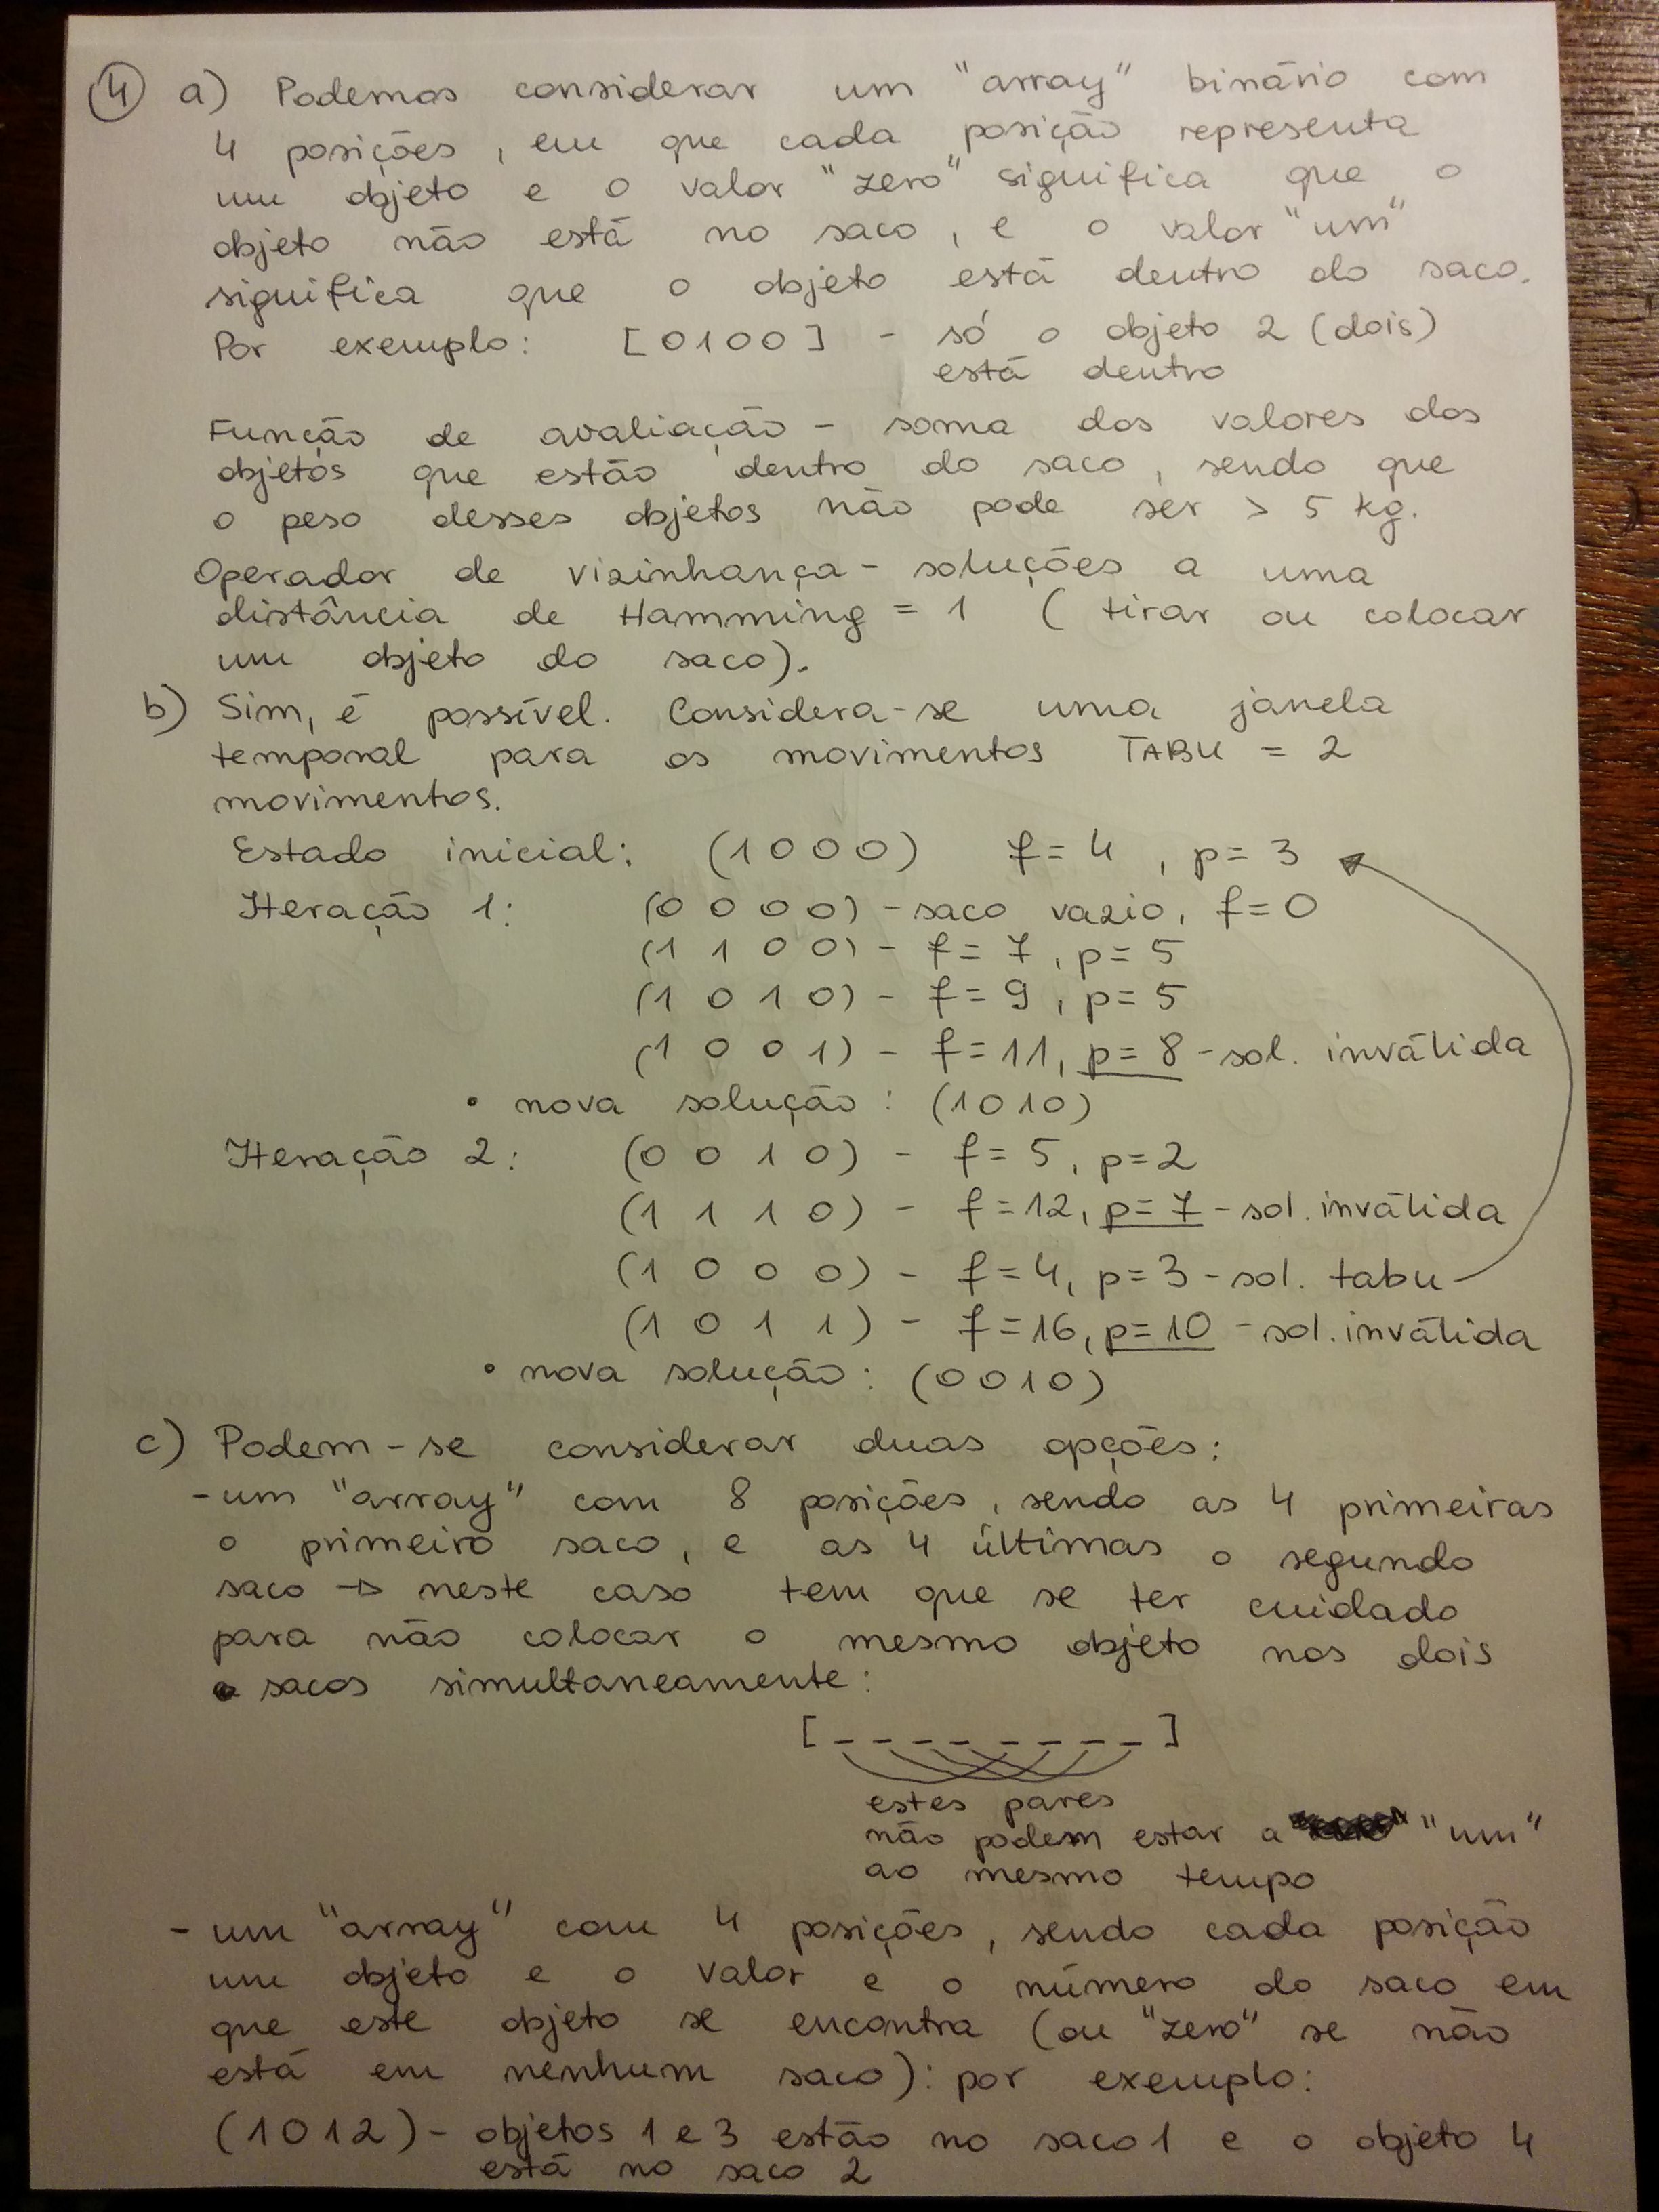 4 a) Podemos considerar um "array" binário com
4 posições, em que cada posição representa
um objeto e o valor "zero" significa que o
objeto não está no saco, e o valor "um"
significa que o objeto está dentro do saco.
Por exemplo: [0100] - só o objeto 2 (dois)
está dentro
Função de avaliação - soma dos valores dos
objetos que estão dentro do saco, sendo que
o peso desses objetos não pode ser > 5 kg.
Operador de vizinhança - soluções a uma
distância de Hamming = 1 (tirar ou colocar
um objeto do saco).
b) Sim, é possível. Considera-se uma janela
temporal para os movimentos TABU = 2
movimentos.
Estado inicial: (1000) f=4, p=3
Iteração 1: (0 0 0 0) - saco vazio, f=0
(1 1 0 0) - f=7, p=5
(1 0 1 0) - f=9, p=5
(1 0 0 1) - f=11, p=8 - sol. inválida
• nova solução: (1010)
Iteração 2: (0 0 1 0) - f=5, p=2
(1 1 1 0) - f=12, p=7 - sol. inválida
(1 0 0 0) - f=4, p=3 - sol. tabu
(1 0 1 1) - f=16, p=10 - sol. inválida
• nova solução: (0010)
c) Podem-se considerar duas opções:
- um "array" com 8 posições, sendo as 4 primeiras
o primeiro saco, e as 4 últimas o segundo
saco → neste caso tem que se ter cuidado
para não colocar o mesmo objeto nos dois
sacos simultaneamente:
[_ _ _ _ _ _ _ _]
estes pares
não podem estar a "um"
ao mesmo tempo
- um "array" com 4 posições, sendo cada posição
um objeto e o valor e o número do saco em
que este objeto se encontra (ou "zero" se não
está em nenhum saco): por exemplo:
(1012) - objetos 1 e 3 estão no saco 1 e o objeto 4
está no saco 2